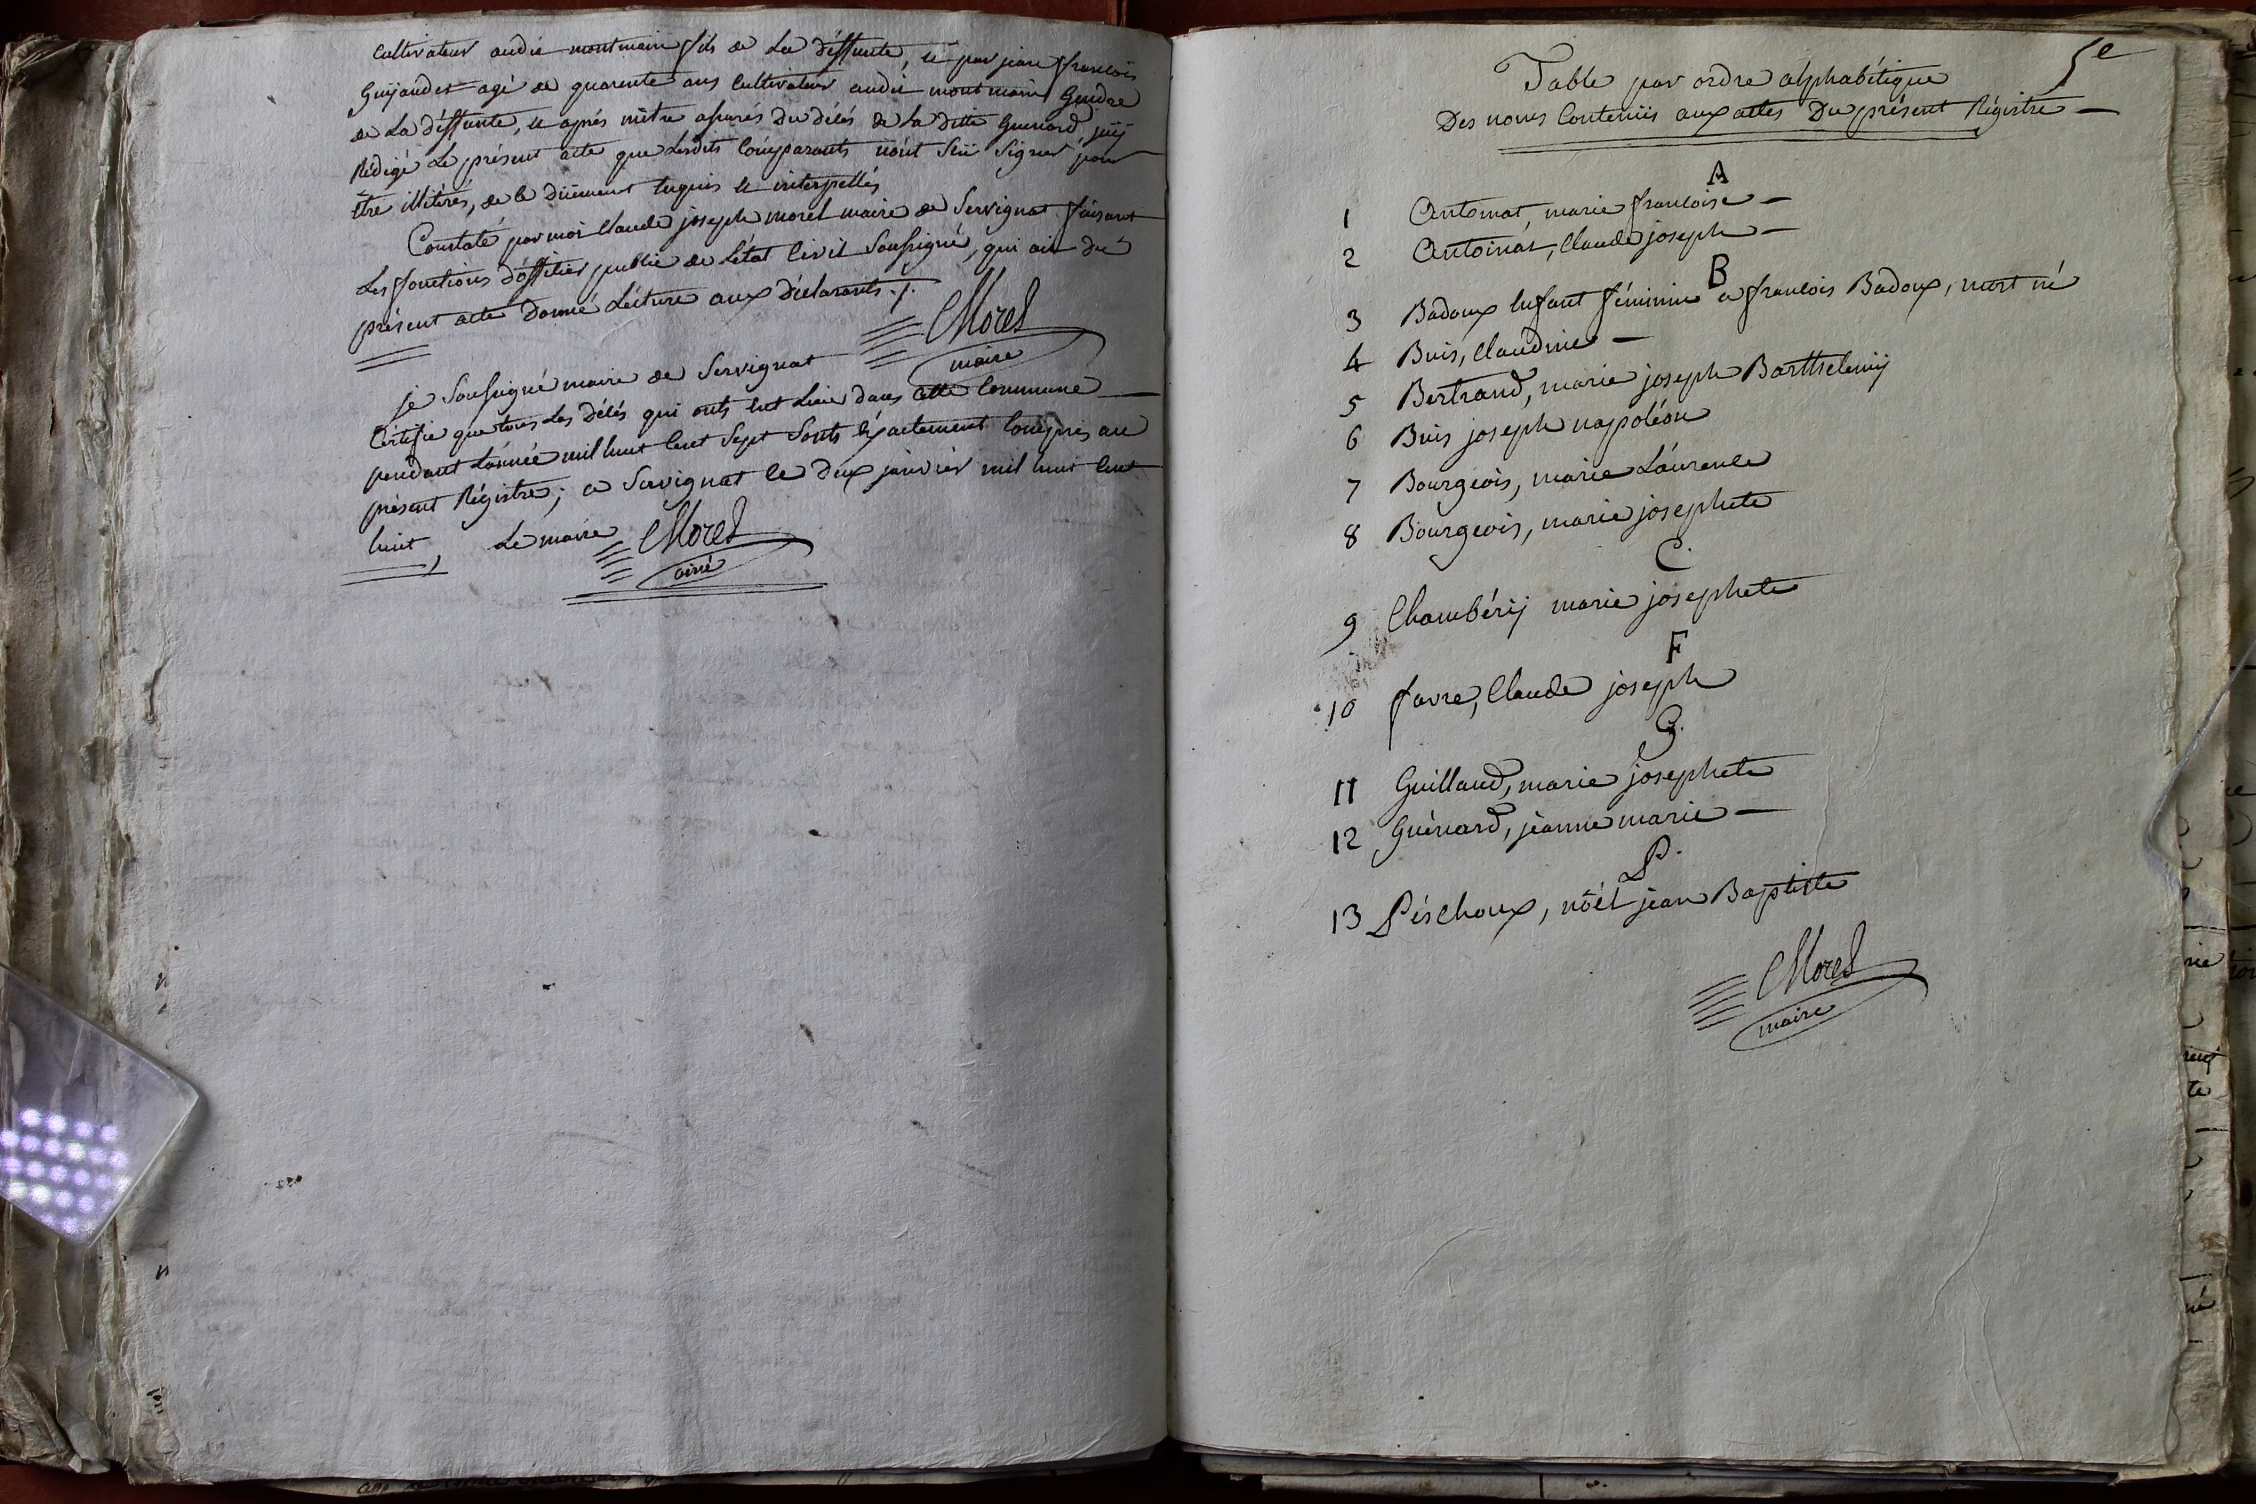 cultivateur audit montmain fils de La déffunte, et par jean françois
Guyaudet agé de quarente ans cultivateur audit montmain Gendre
de La déffunte, et aprés m'être assurés du désés de La ditte Guenard, j'ay
Rédigé Le présent acte que Lesdits Comparants n'ont Seü Signer pour
être illitérés, de ce düement Enquis et interpellés
Constaté par moi Claude joseph morel maire de Servignat faisant
Les fonctions d'officier public de L'état Civil Soussigné, qui ait du
présent acte Donné Lécture aux déclarants ./.
Morel
maire
je Soussigné maire de Servignat
Certifie que tous Les désés qui onts eut Lieu dans cette Commune
pendant L'année mil huit Cent Sept Sonts éxactement Compris au
présent Régistre; a Servignat le deux janvier mil huit Cent
huit, Le maire Morel
ainé
5e
Table par ordre alphabétique
Des noms Contenüs aux actes Du présent Régistre
A
1 Antoinat, marie françoise
2 Antoinat, Claude joseph
B
3 Badoux Enfant féminin a françois Badoux, mort né
4 Buis, Claudine
5 Bertrand, marie joseph Barthelemy
6 Buis joseph napoléon
7 Bourgeois, marie Laurence
8 Bourgeois, marie josephete
C.
9 Chambéry marie josephete
F
10 favre, Claude joseph
G.
11 Guillaud, marie josephete
12 Guénard, jeanne marie
P.
13 Péschoux, nöél jean Baptiste
Morel
maire